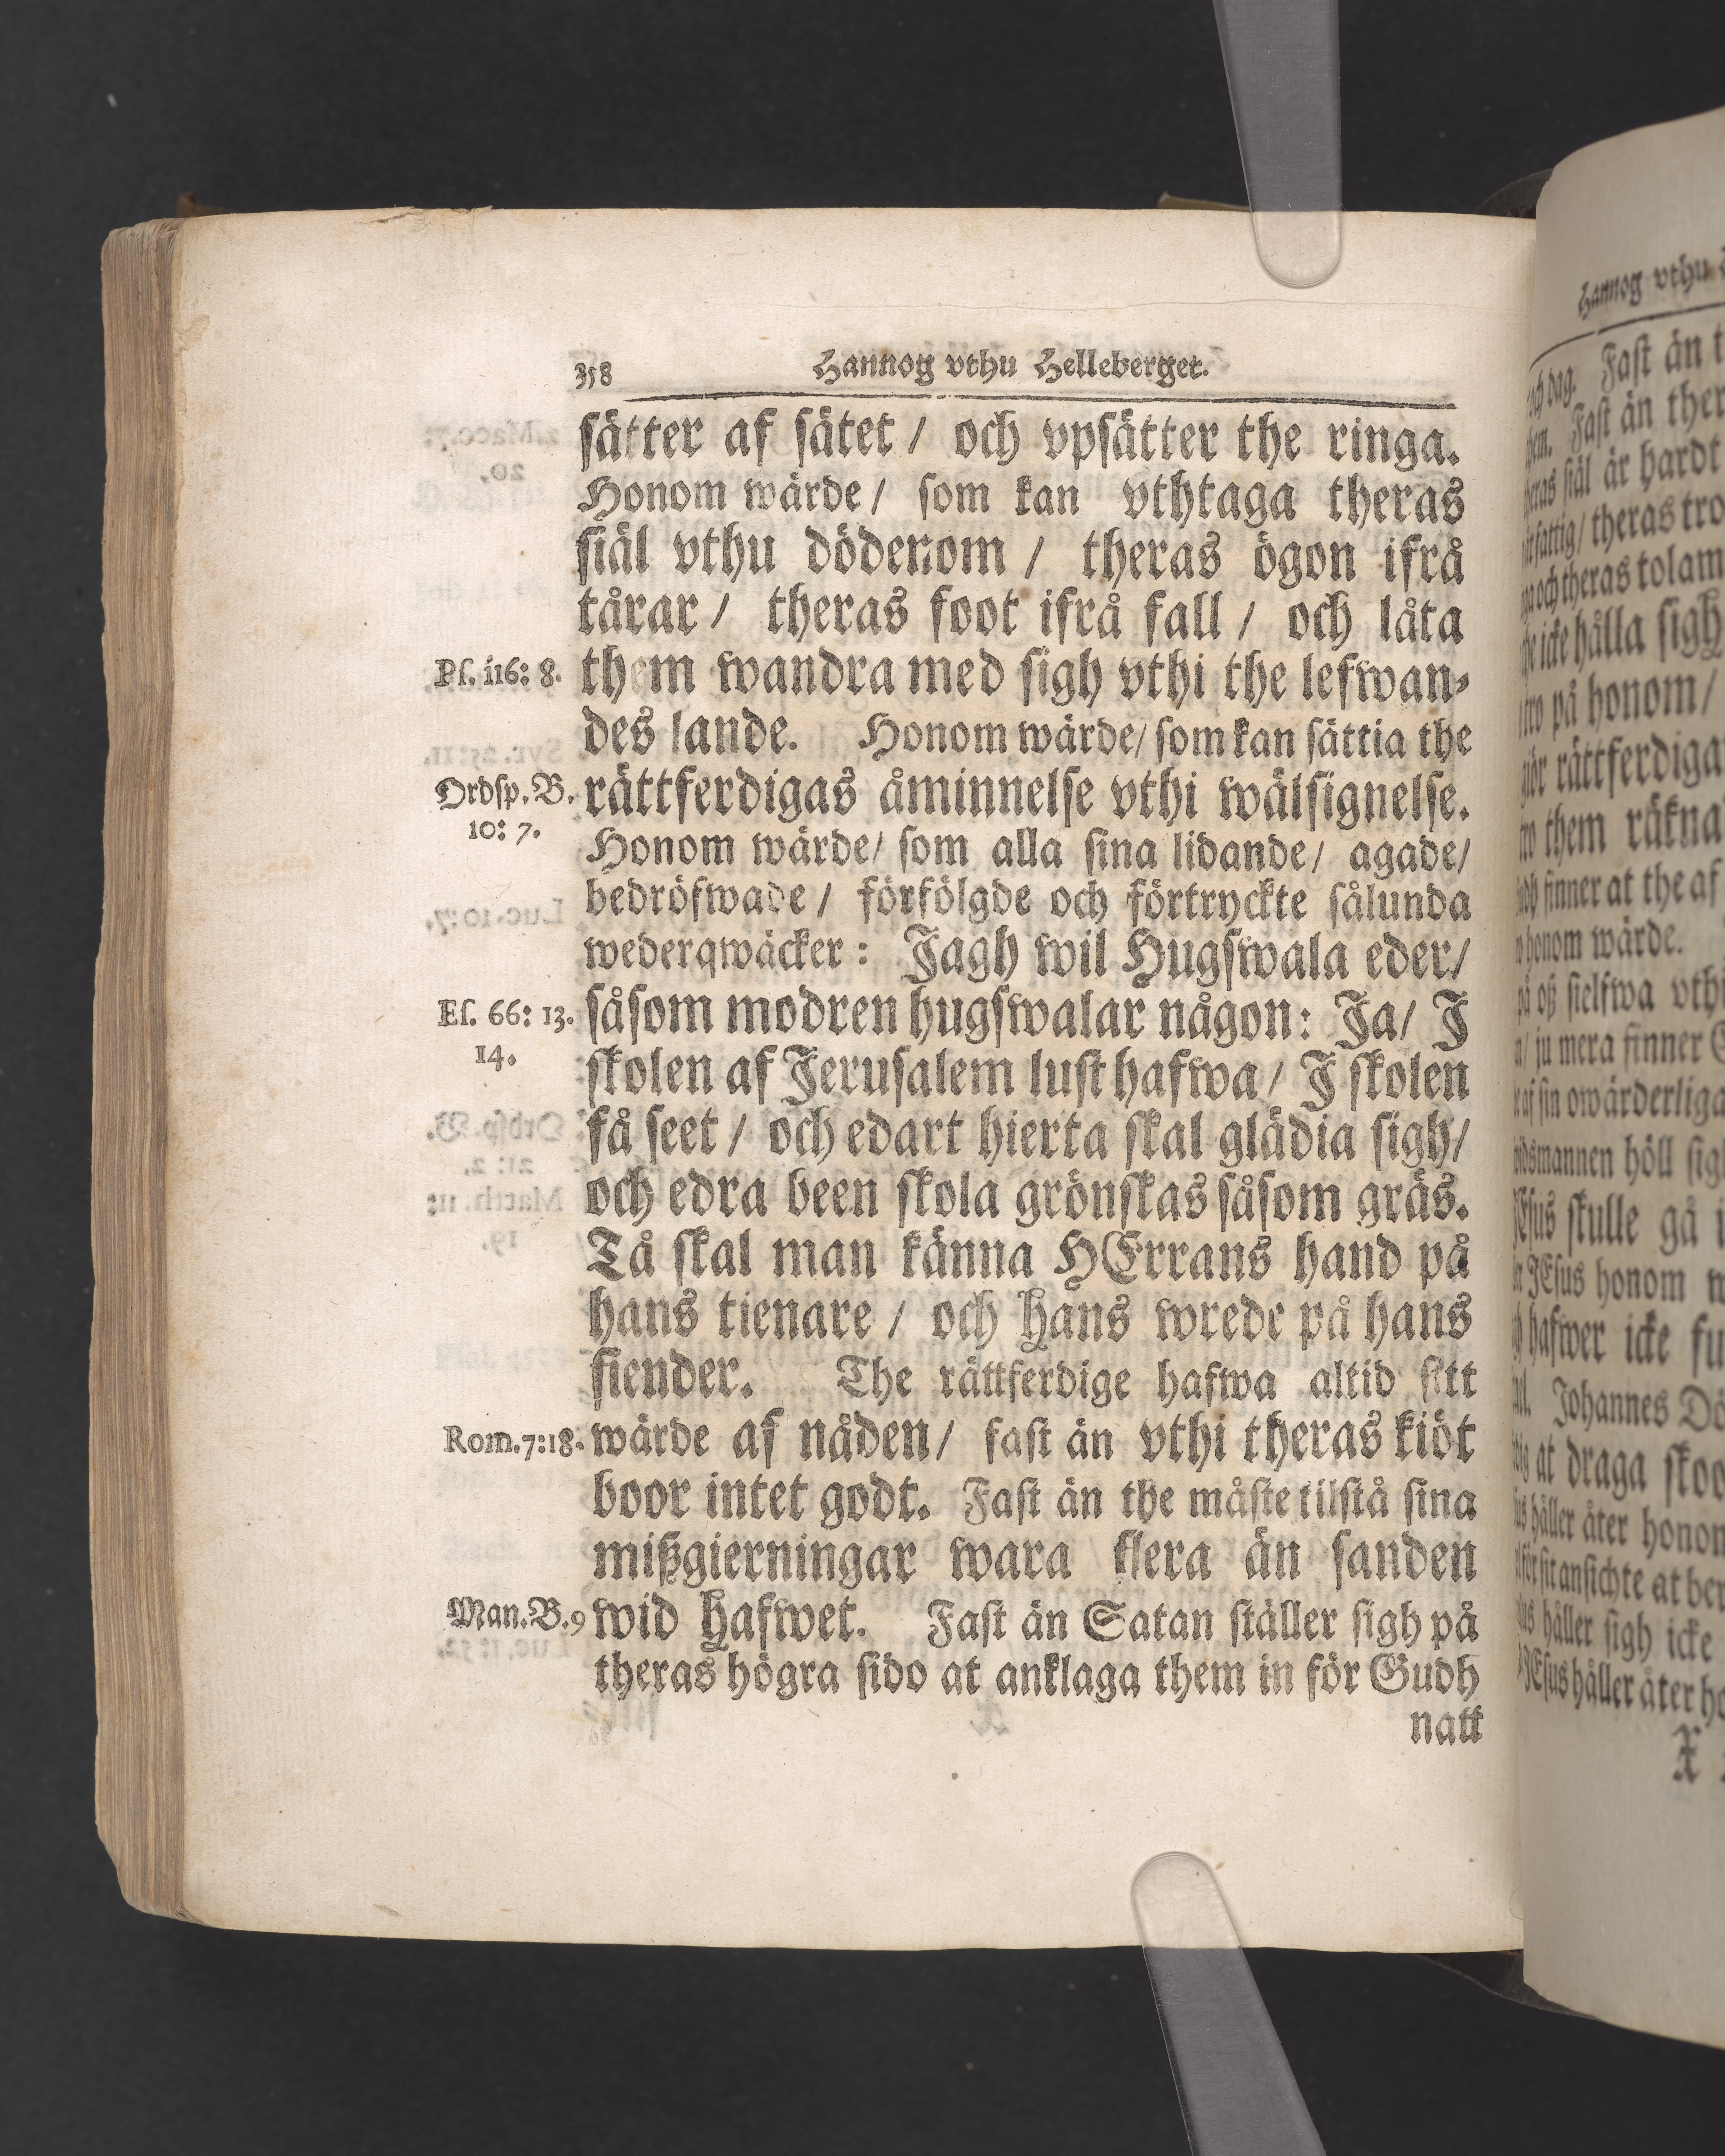 358 Hannog vthu Helleberget.
sätter af sätet / och vpsätter the ringa.
Honom wärde / som kan vthtaga theras
siäl vthu dödenom / theras ögon ifrå
tårar / theras foot ifrå fall / och låta
Ps. 116: 8. them wandra med sigh vthi the lefwan-
des lande. Honom wärde / som kan sättia the
Ordsp. B. rättferdigas åminnelse vthi wälsignelse.
10: 7.
Honom wärde / som alla sina lidande / agade /
bedröfwade / förfölgde och förtryckte sålunda
wederqwäcker: Jagh wil Hugswala eder /
Es. 66: 13. såsom modren hugswalar någon: Ja / J
14.
skolen af Jerusalem lust hafwa / J skolen
få seet / och edart hierta skal glädia sigh /
och edra been skola grönskas såsom gräs.
Tå skal man känna HErrans hand på
hans tienare / och Hans wrede på hans
fiender. The rättferdige hafwa altid sitt
Rom. 7: 18. wärde af nåden / fast än vthi theras kiöt
boor intet godt. Fast än the måste tilstå sina
mißgierningar wara flera än sanden
Man. B. 9 wid Hafwet. Fast än Satan ställer sigh på
theras högra sido at anklaga them in för Gudh
natt
Hannog vthu
och dag. Fast än
Fast än
siäl är hardt
fattig / theras
och theras
icke hålla sigh
på honom /
rättferdiga
them räkna
finner at the af
honom wärde.
på oß sielfwa
ju mera finner
sin owärderliga
höll
skulle gå
JEsus honom
hafwer icke
Johannes
at draga
håller åter
sit ansichte at
håller sigh icke
JEsus håller åter
X